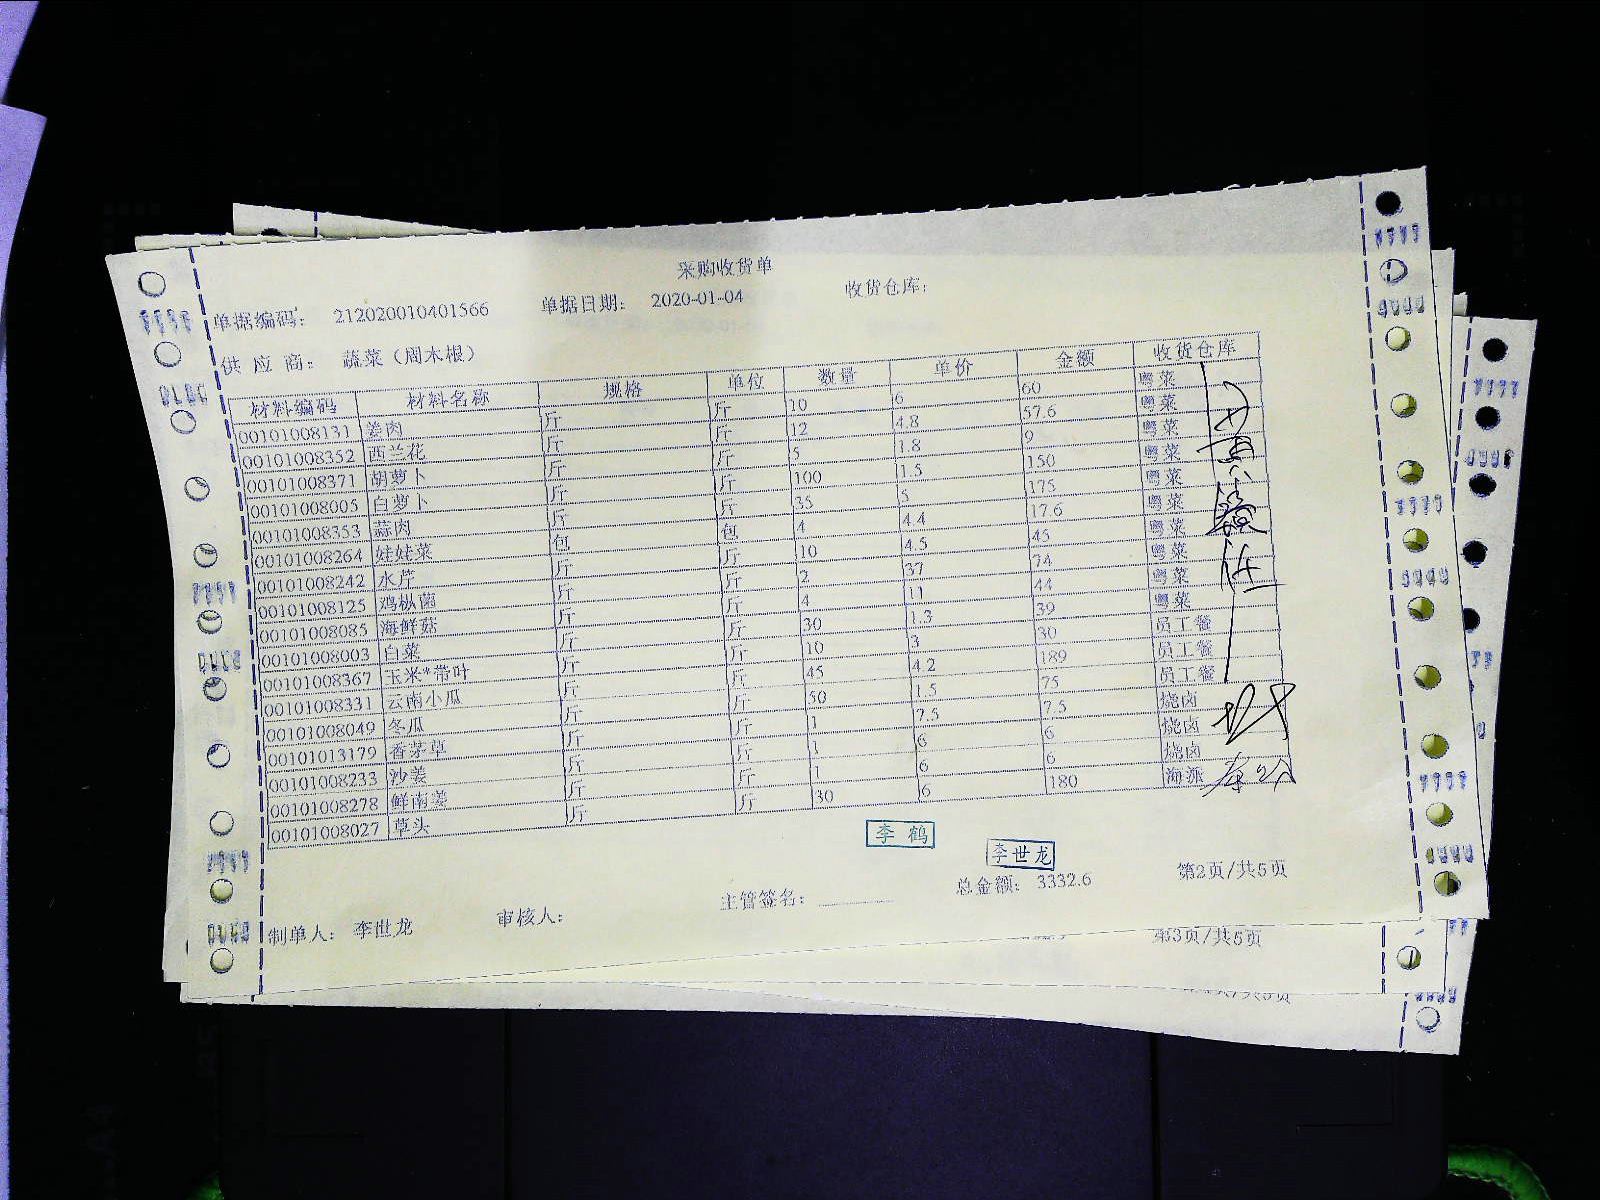 采购收货单
单据编码: 212020010401566 单据日期: 2020-01-04 收货仓库:
供应商: 蔬菜(周木根)
材料编码 材料名称 规格 单位 数量 单价 金额 收货仓库
00101008131 姜肉 斤 斤 10 6 60 粤菜
00101008352 西兰花 斤 斤 12 4.8 57.6 粤菜
00101008371 胡萝卜 斤 斤 5 1.8 9 粤菜
00101008005 白萝卜 斤 斤 100 1.5 150 粤菜
00101008353 蒜肉 斤 斤 35 5 175 粤菜
00101008264 娃娃菜 包 包 4 4.4 17.6 粤菜
00101008242 水芹 斤 斤 10 4.5 45 粤菜
00101008125 鸡枞菌 斤 斤 2 37 74 粤菜
00101008085 海鲜菇 斤 斤 4 11 44 粤菜
00101008003 白菜 斤 斤 30 1.3 39 粤菜
00101008367 玉米*带叶 斤 斤 10 3 30 员工餐
00101008331 云南小瓜 斤 斤 45 4.2 189 员工餐
00101008049 冬瓜 斤 斤 50 1.5 75 员工餐
00101013179 香茅草 斤 斤 1 7.5 7.5 烧卤
00101008233 沙姜 斤 斤 1 6 6 烧卤
00101008278 鲜南姜 斤 斤 1 6 6 烧卤
00101008027 草头 斤 斤 30 6 180 海派
李鹤
李世龙
制单人: 李世龙 审核人: 主管签名: 总金额: 3332.6 第2页/共5页
第3页/共5页